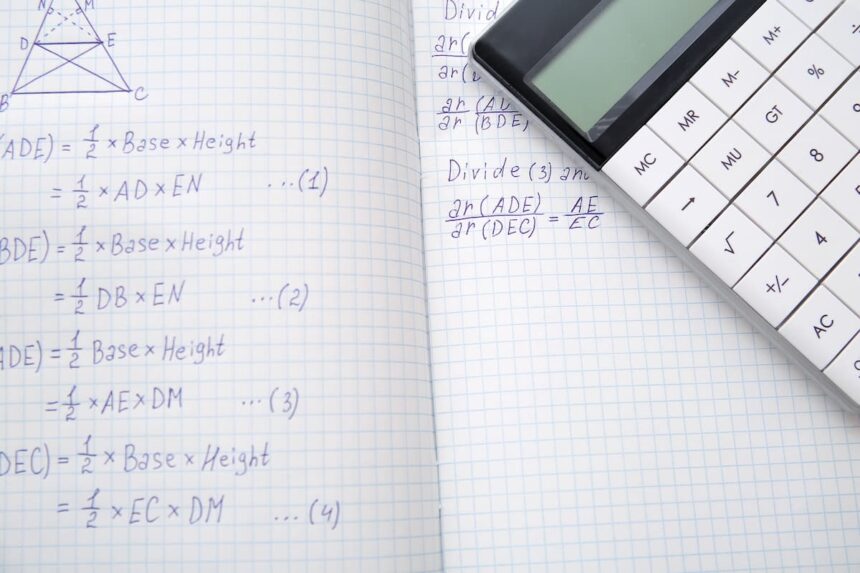 N M
D E
B C
(ADE) = 1/2 × Base × Height
= 1/2 × AD × EN ...(1)
BDE) = 1/2 × Base × Height
= 1/2 DB × EN ...(2)
ADE) = 1/2 Base × Height
= 1/2 × AE × DM ...(3)
DEC) = 1/2 × Base × Height
= 1/2 × EC × DM ...(4)
Divid
ar(
ar(
ar (AD
ar (BDE)
Divide (3) an
ar(ADE)/ar(DEC) = AE/EC
M+
M- %
MR GT
MC MU 8
→ 7
√ 4
+/-
AC